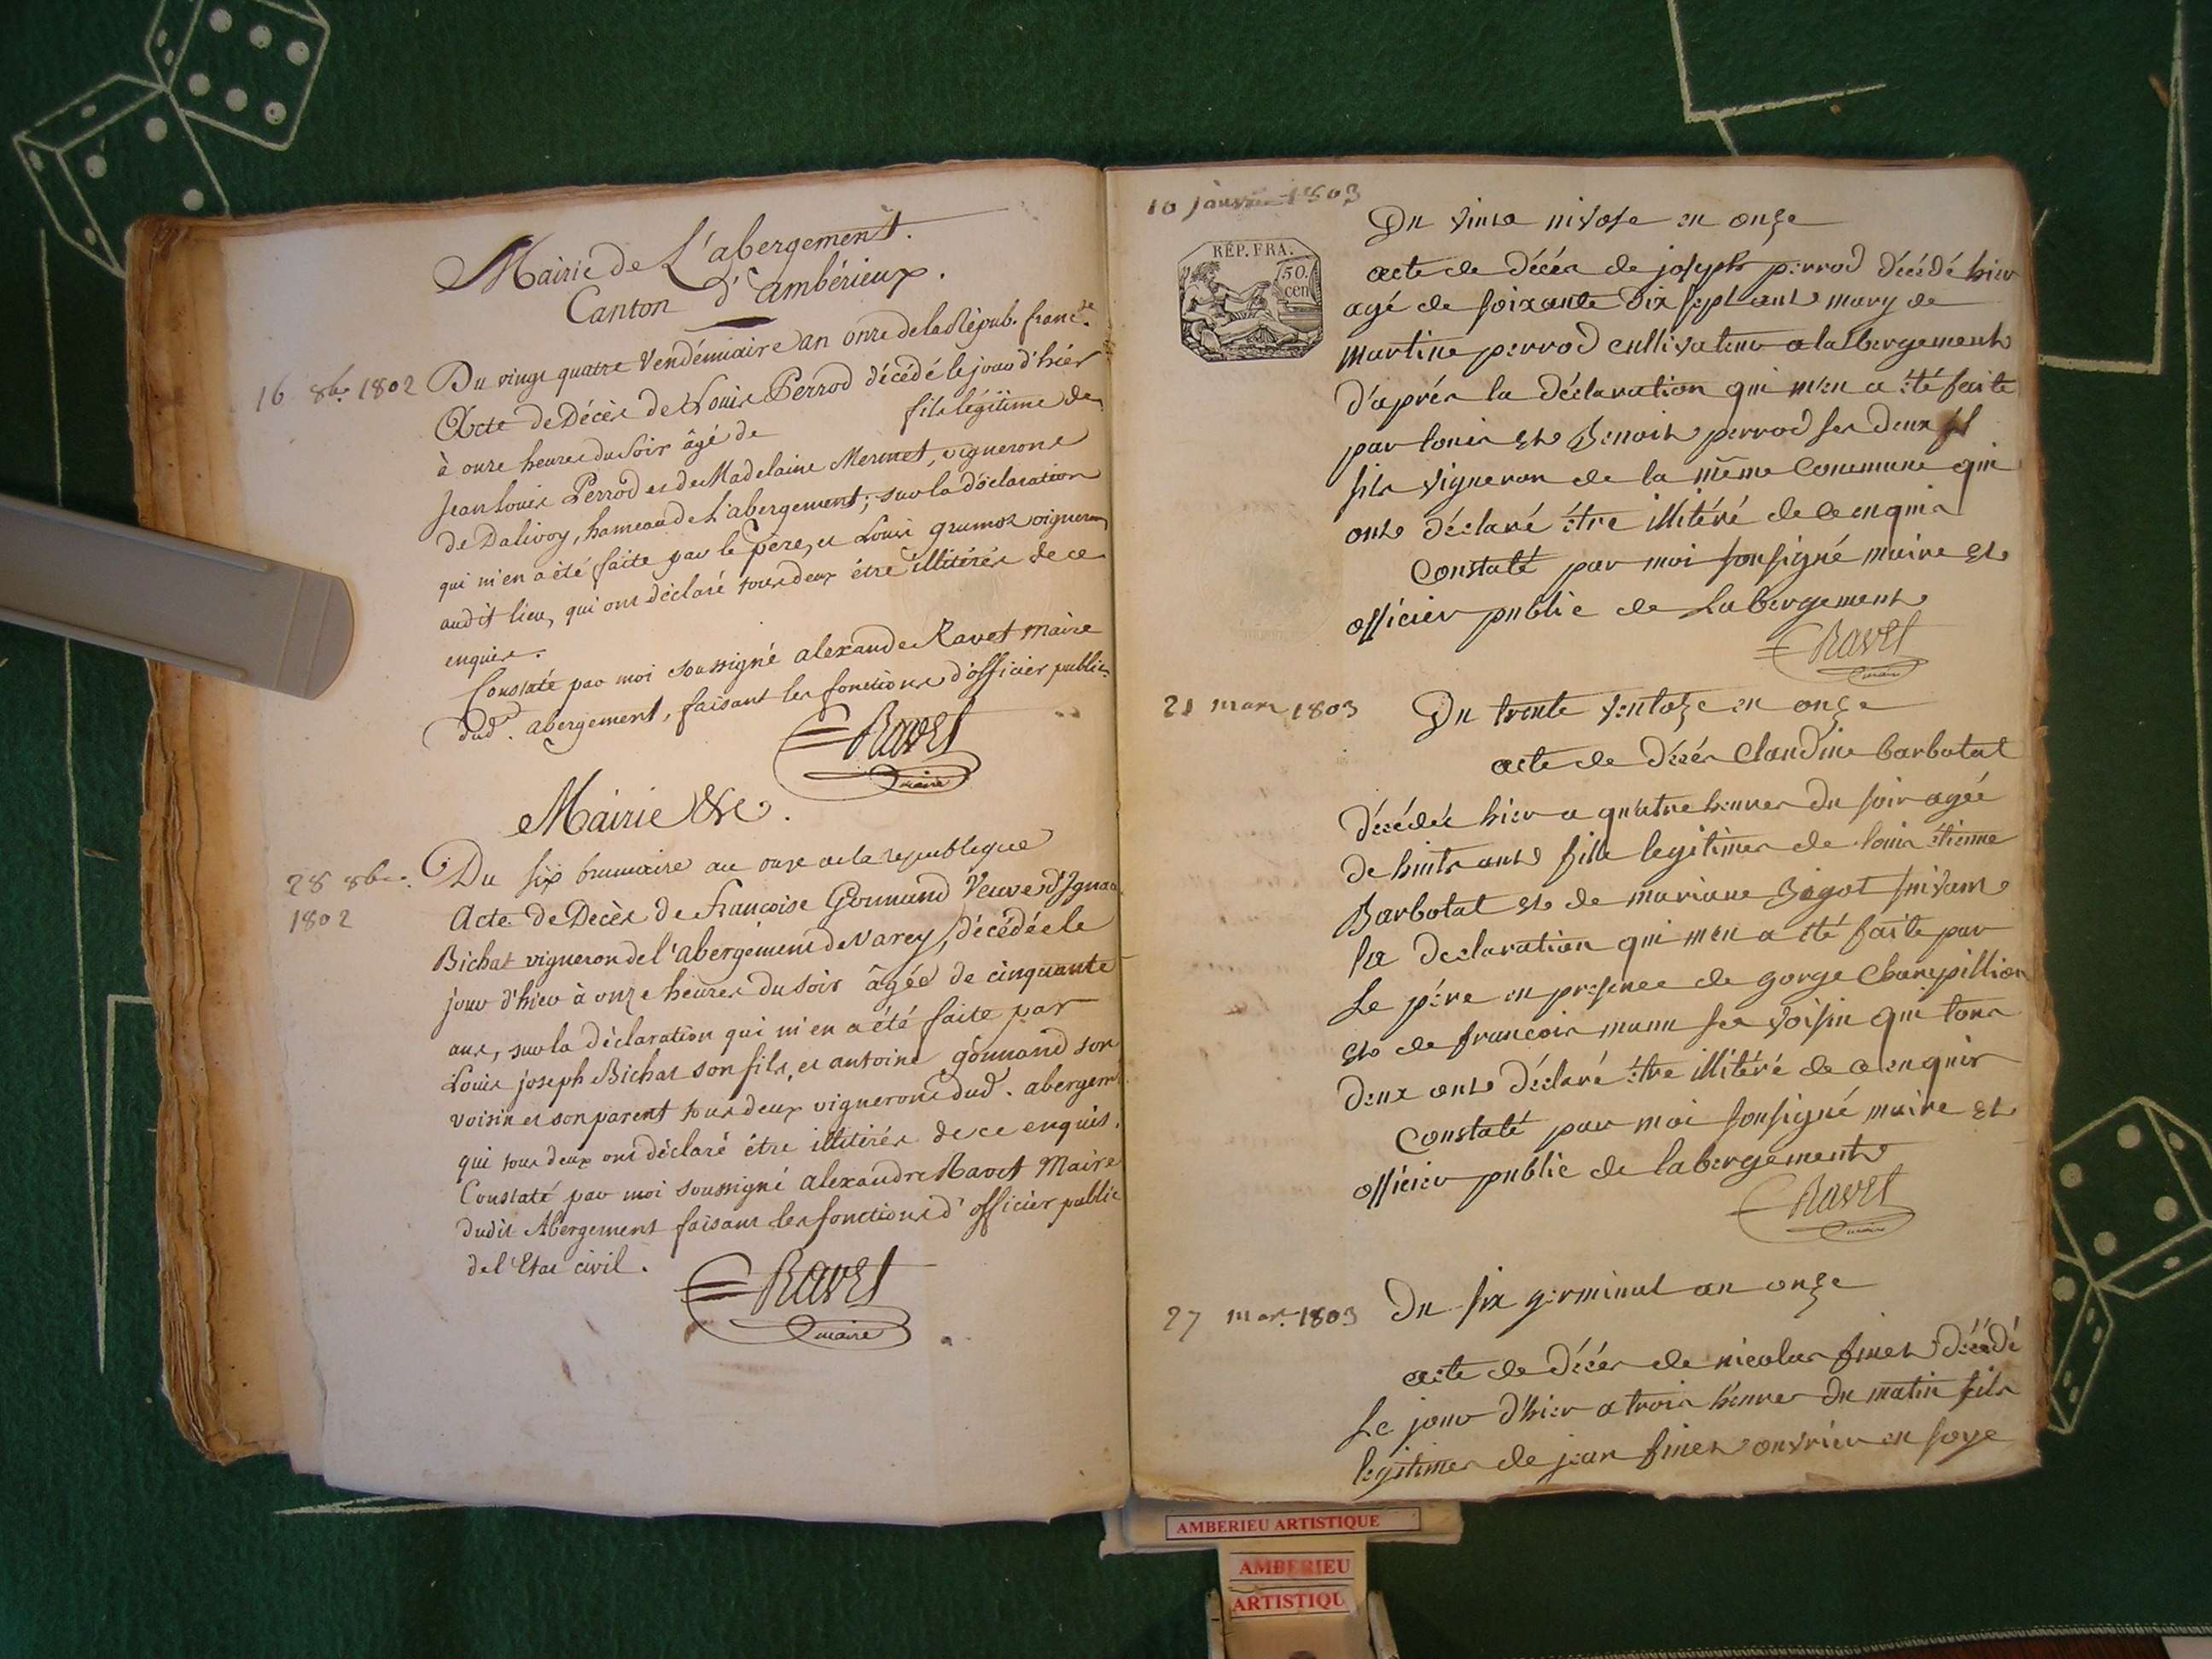 Mairie de L'abergement.
Canton d'ambérieux.
16 8bre 1802
Du vingt quatre Vendémiaire an onze de la Répub. francse.
Acte de Décès de Louis Perrod décédé le jour d'hier
à onze heures du Soir âgé de fils légitime de
Jean Louis Perrod et de Madelaine Mermet, vignerons
de Dalivoy, hameau de L'abergement; sur la déclaration
qui m'en a été faite par le père, et Louis grumot vigneron
audit lieu, qui ont déclaré tous deux être illitérés de ce
enquis.
Constaté par moi soussigné alexandre Ravet maire
dud. abergement, faisant les fonctions d'officier public.
Ravet
maire
Mairie &c.
28 8bre.
1802
Du six brumaire an onze de la republique
Acte de Décès de Francoise Gonnand Veuve d'Ignace
Bichat vigneron de l'abergement de Varey, décédée le
jour d'hier à onze heures du soir âgée de cinquante
ans, sur la déclaration qui m'en a été faite par
Louis joseph Bichat son fils, et antoine gonnand son
voisin et son parent tous deux vignerons dud. abergemt
qui tous deux ont déclaré être illitérés de ce enquis.
Constaté par moi soussigné alexandre Ravet Maire
dudit Abergement faisant les fonctions d'officier public
de l'Etat civil.
Ravet
maire
10 janvier 1803
RÉP. FRA.
50.
cen
Du vint nivose en onze
acte de décés de joseph perrod décédé hier
agé de soixante dix sept ant mary de
martine perrod cultivateur a labergement
d'aprés la déclaration qui m'en a été faite
par louis et Benoit perrod ses deux
fils vigneron de la même Commune qui
ont déclaré étre illitéré de ce enquis
Constaté par moi sousigné maire et
officier public de Labergement
Ravet
maire
21 mars 1803
Du trente ventoze en onze
acte de décés Claudine barbotat
décédée hier a quatre heures du soir agée
de huits ant fille legitimes de louis étienne
Barbotat et de mariane Bigot suivant
la declaration qui m'en a été faite par
Le pére en presence de gorge Chanpillion
et de francois munu ses voisin qui tous
deux ont déclaré étre illitéré de ce enquis
Constaté par moi sousigné maire et
officier public de labergement
Ravet
maire
27 mars 1803
Du six germinal an onze
acte de décés de nicolas finet décédé
Le jour d'hier a trois heures du matin fils
legitimes de jean finet ouvrier en soye
AMBERIEU ARTISTIQUE
AMBERIEU
ARTISTIQU